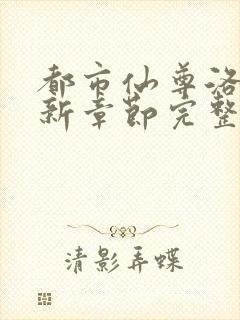 都市仙尊洛
新章节完整
清影弄蝶